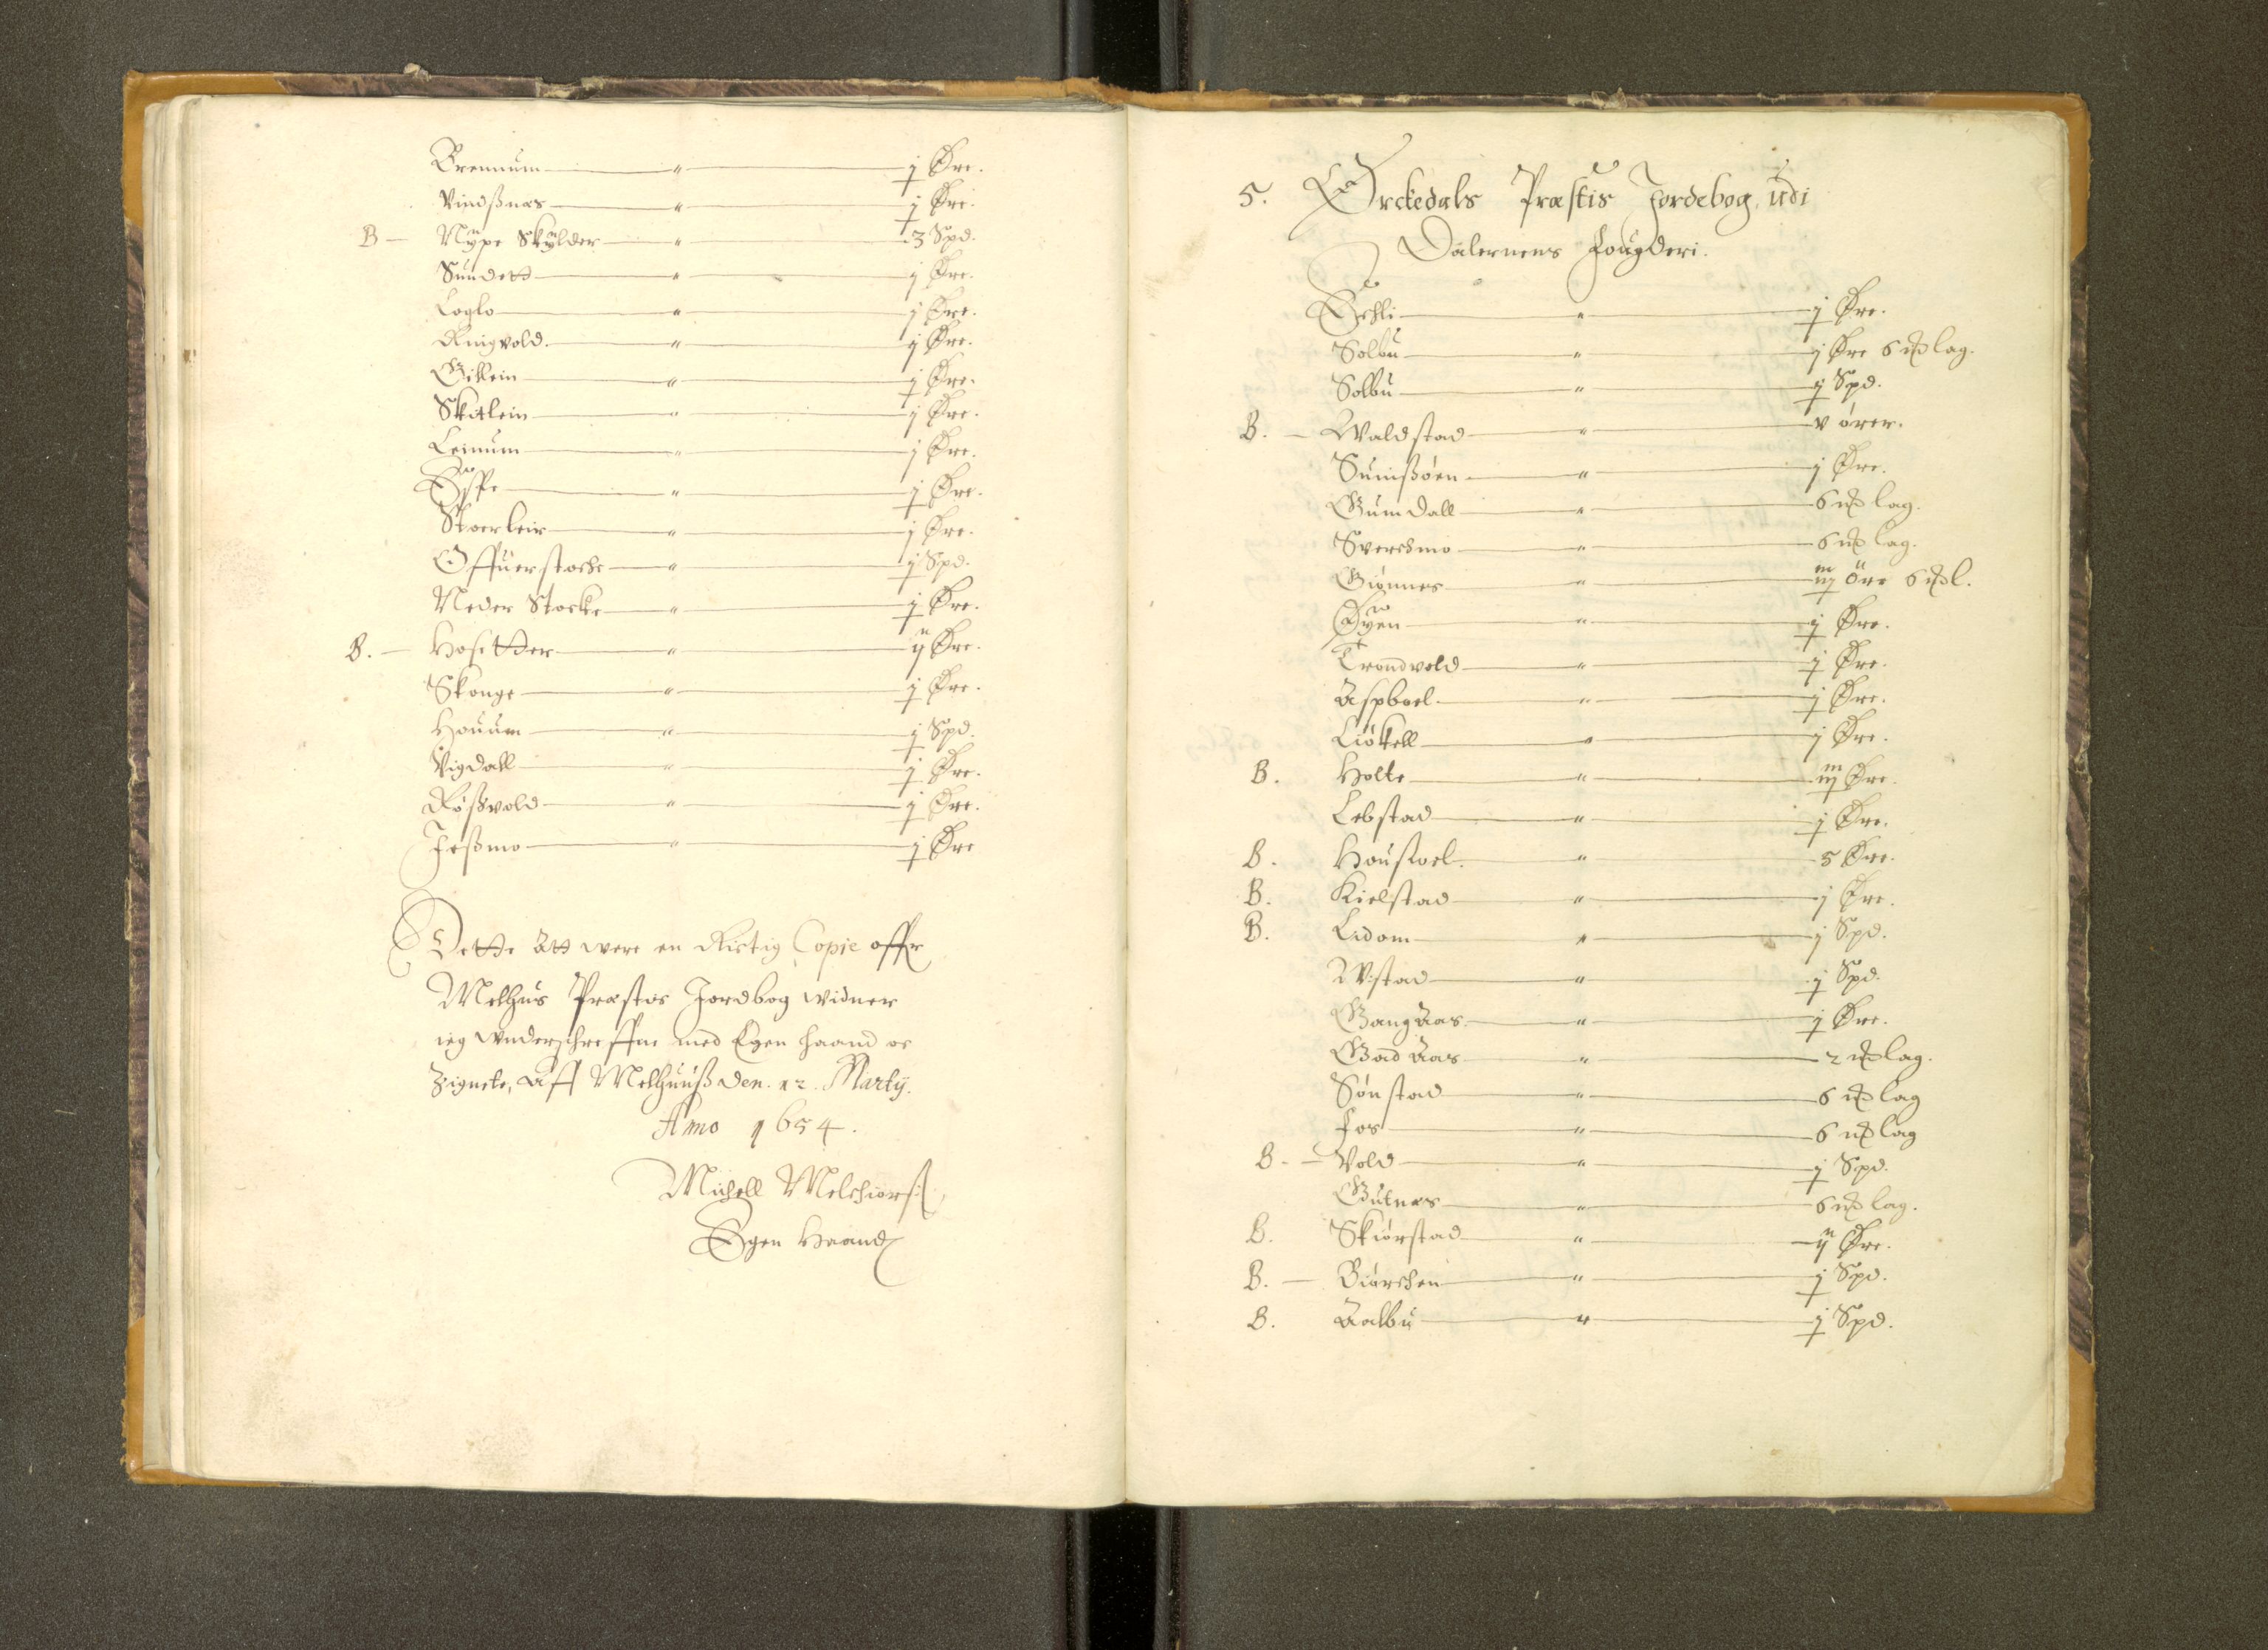 Bremnum — " — j Øre.
Vindßnæs — " — j Øre.
B — Nype Skylder — " — 3 Spd.
Sundett — " — j Øre.
Loglo — " — j Øre.
Ringvold — " — j Øre.
Gillein — " — j Øre.
Skitlein — " — j Øre.
Leinum — " — j Øre.
Øspe — " — j Øre.
Storlein — " — j Øre.
Offuerstoche — " — j Spd.
Neder Stocke — " — j Øre.
B. — Hofetter — " — ij Øre.
Skonge — " — j Øre.
Houum — " — j Spd.
Vigdall — " — j Øre.
Røßvold — " — j Øre.
Jeßmo — " — j Øre
Dette att were en Rictig Copie aff
Melhus Præstes Jordbog widner
ieg vnderschreffne med Egen haand oc
Zignete, Aff Melhuuß den. 12. Martij.
Anno 1654.
Michell Melchiorß:
Egen Haand
5. Orckedals Præstis Jordebog, udi
Dalernens Fougderi.
Echli — " — j Øre.
Solbu — " — j Øre 6 m̃lag.
Solbu — " — j Spd.
B. — Waldstad — " — v ører.
Sunißøen — " — j Øre.
Gumdall — " — 6 m̃lag.
Sverchmo — " — 6 m̃lag.
Giønnes — " — iij Öre 6 m̃l.
Øyen — " — j Øre.
Trondvold — " — j Øre.
Aspboel — " — j Øre.
Liøkell — " — j Øre.
B. Holte — " — iij Øre.
Lebstad — " — j Øre.
B. Houskoel. — " — 5 Øre.
B. Kielstad — " — j Øre.
B. Lidom — " — j Spd.
Wstad — " — j Spd.
Gangaas — " — j Øre.
Gadaas — " — 2 m̃lag.
Sønstad — " — 6 m̃lag
Fos — " — 6 m̃lag
B. — Vold — " — j Spd.
Gutnæs — " — 6 m̃lag.
B. Skiørstad — " — ij Øre.
B. — Biørchen — " — j Spd.
B. Aalbu — " — j Spd.